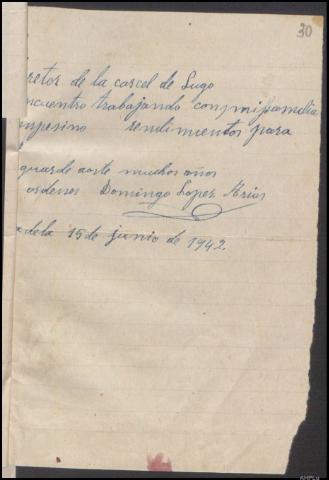 30
retor de la carcel de Lugo
ncuentro trabajando con mi familia
mpesino rendimientos para
guarde aoste muchos años
ordenes Domingo Lopez Arias
dela 15 de junio de 1942.
AHPLu